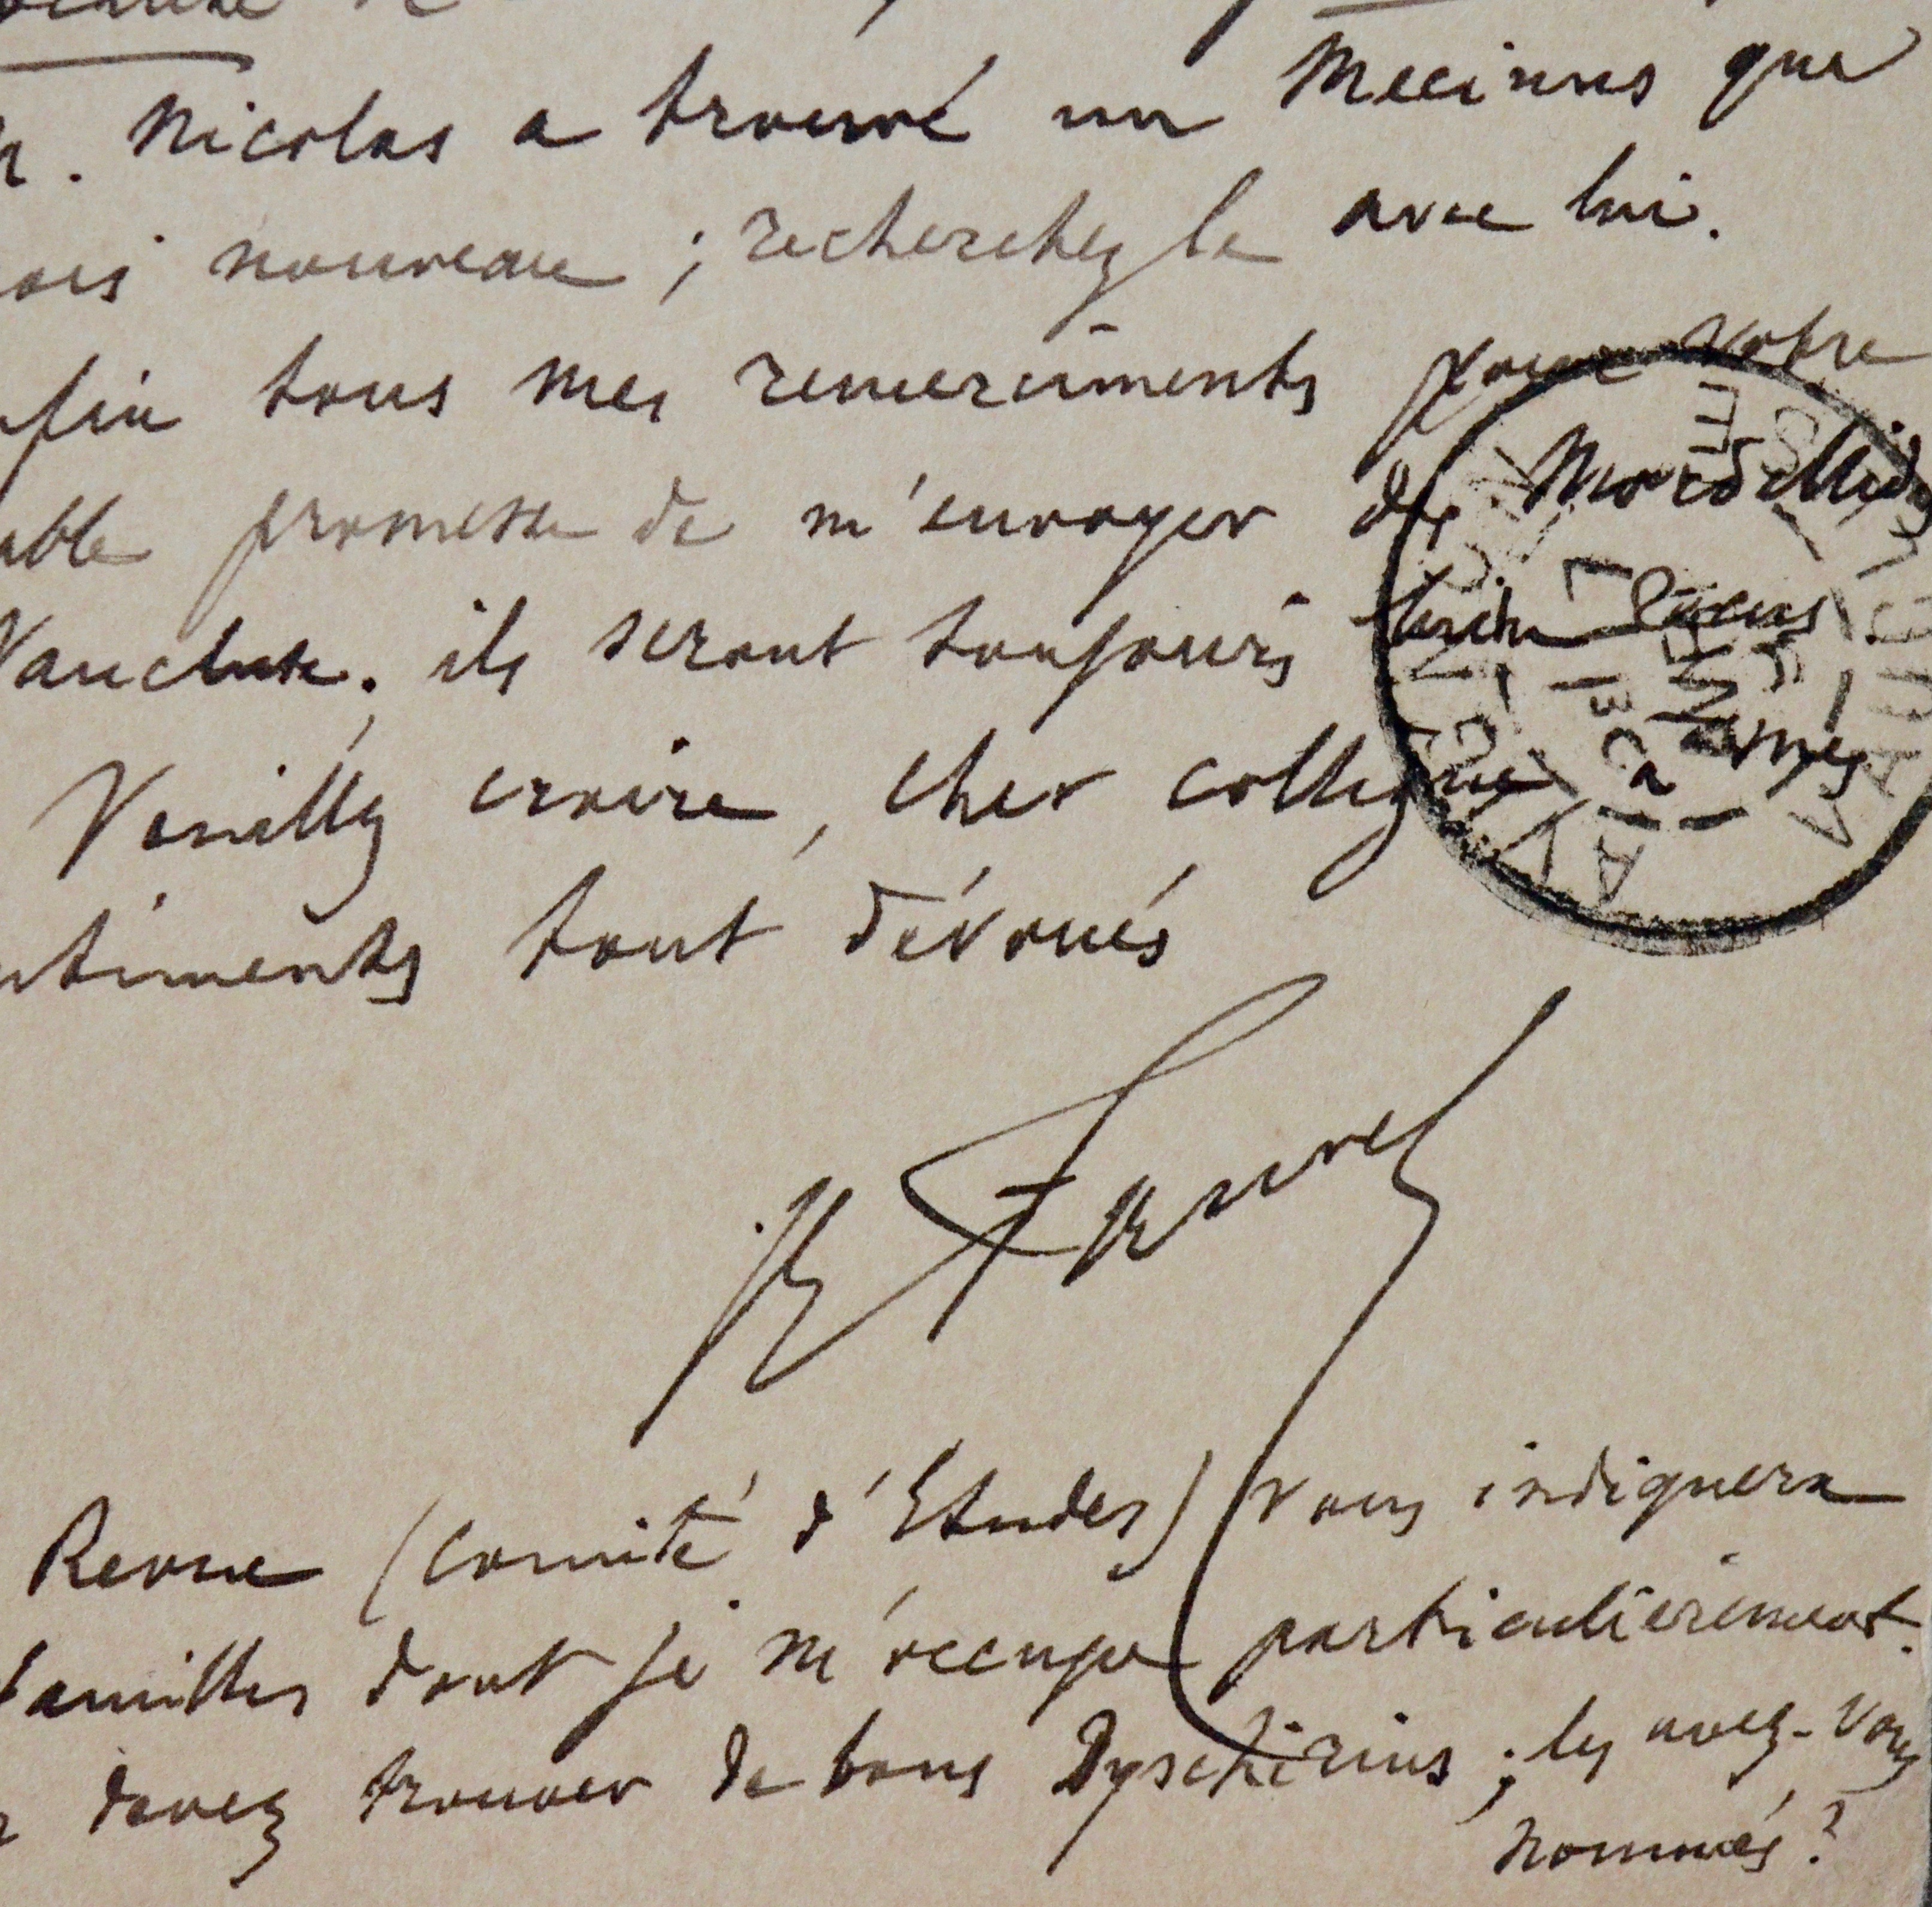 . Nicolas a trouvé un Mecinus que
ois nouveau ; recherchez le avec lui.
fin tous mes remerciments pour votre
able promesse de m'envoyer des Mordellides
Vaucluse ; ils seront toujours bien
Veuillez croire, cher collègue à mes
ntiments tout dévoués
Revue (Comité d'Etudes) vous indiquera
familles dont je m'occupe particulièrement.
devez trouver de bons Dyschirius ; les avez-vous
nommés ?